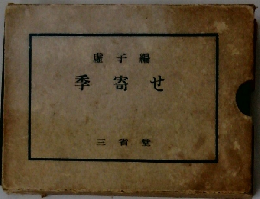 虚子編
季寄せ
三省堂